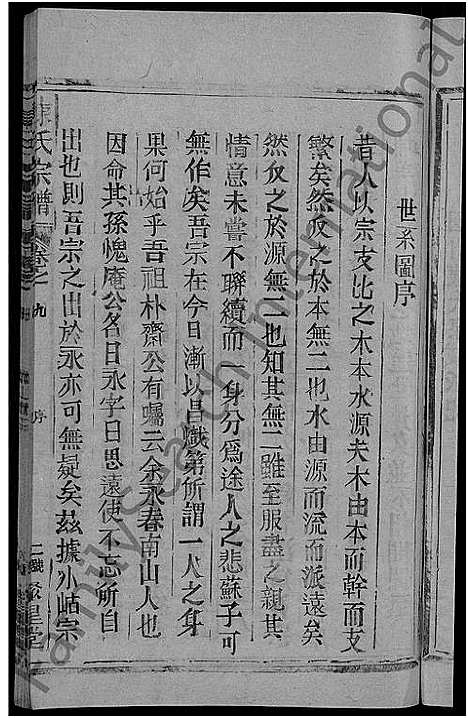 世系圖序
昔人以宗支比之木本水源夫木由本而幹而支
繁矣然反之於本無二也水由源而流而派遠矣
然反之於源無二也知其無二雖至服盡之親其
情意未嘗不聯續而一身分爲途人之悲蘇子可
無作矣吾宗在今日漸以昌熾第所謂一人之身
果何始乎吾祖朴齋公有囑云余永春南山人也
因命其孫愧庵公名曰永字曰思遠使不忘所自
出也則吾宗之出於永亦可無疑矣茲據小岵宗
陳氏宗譜 卷之九 序 聚星堂
FamilySearch International